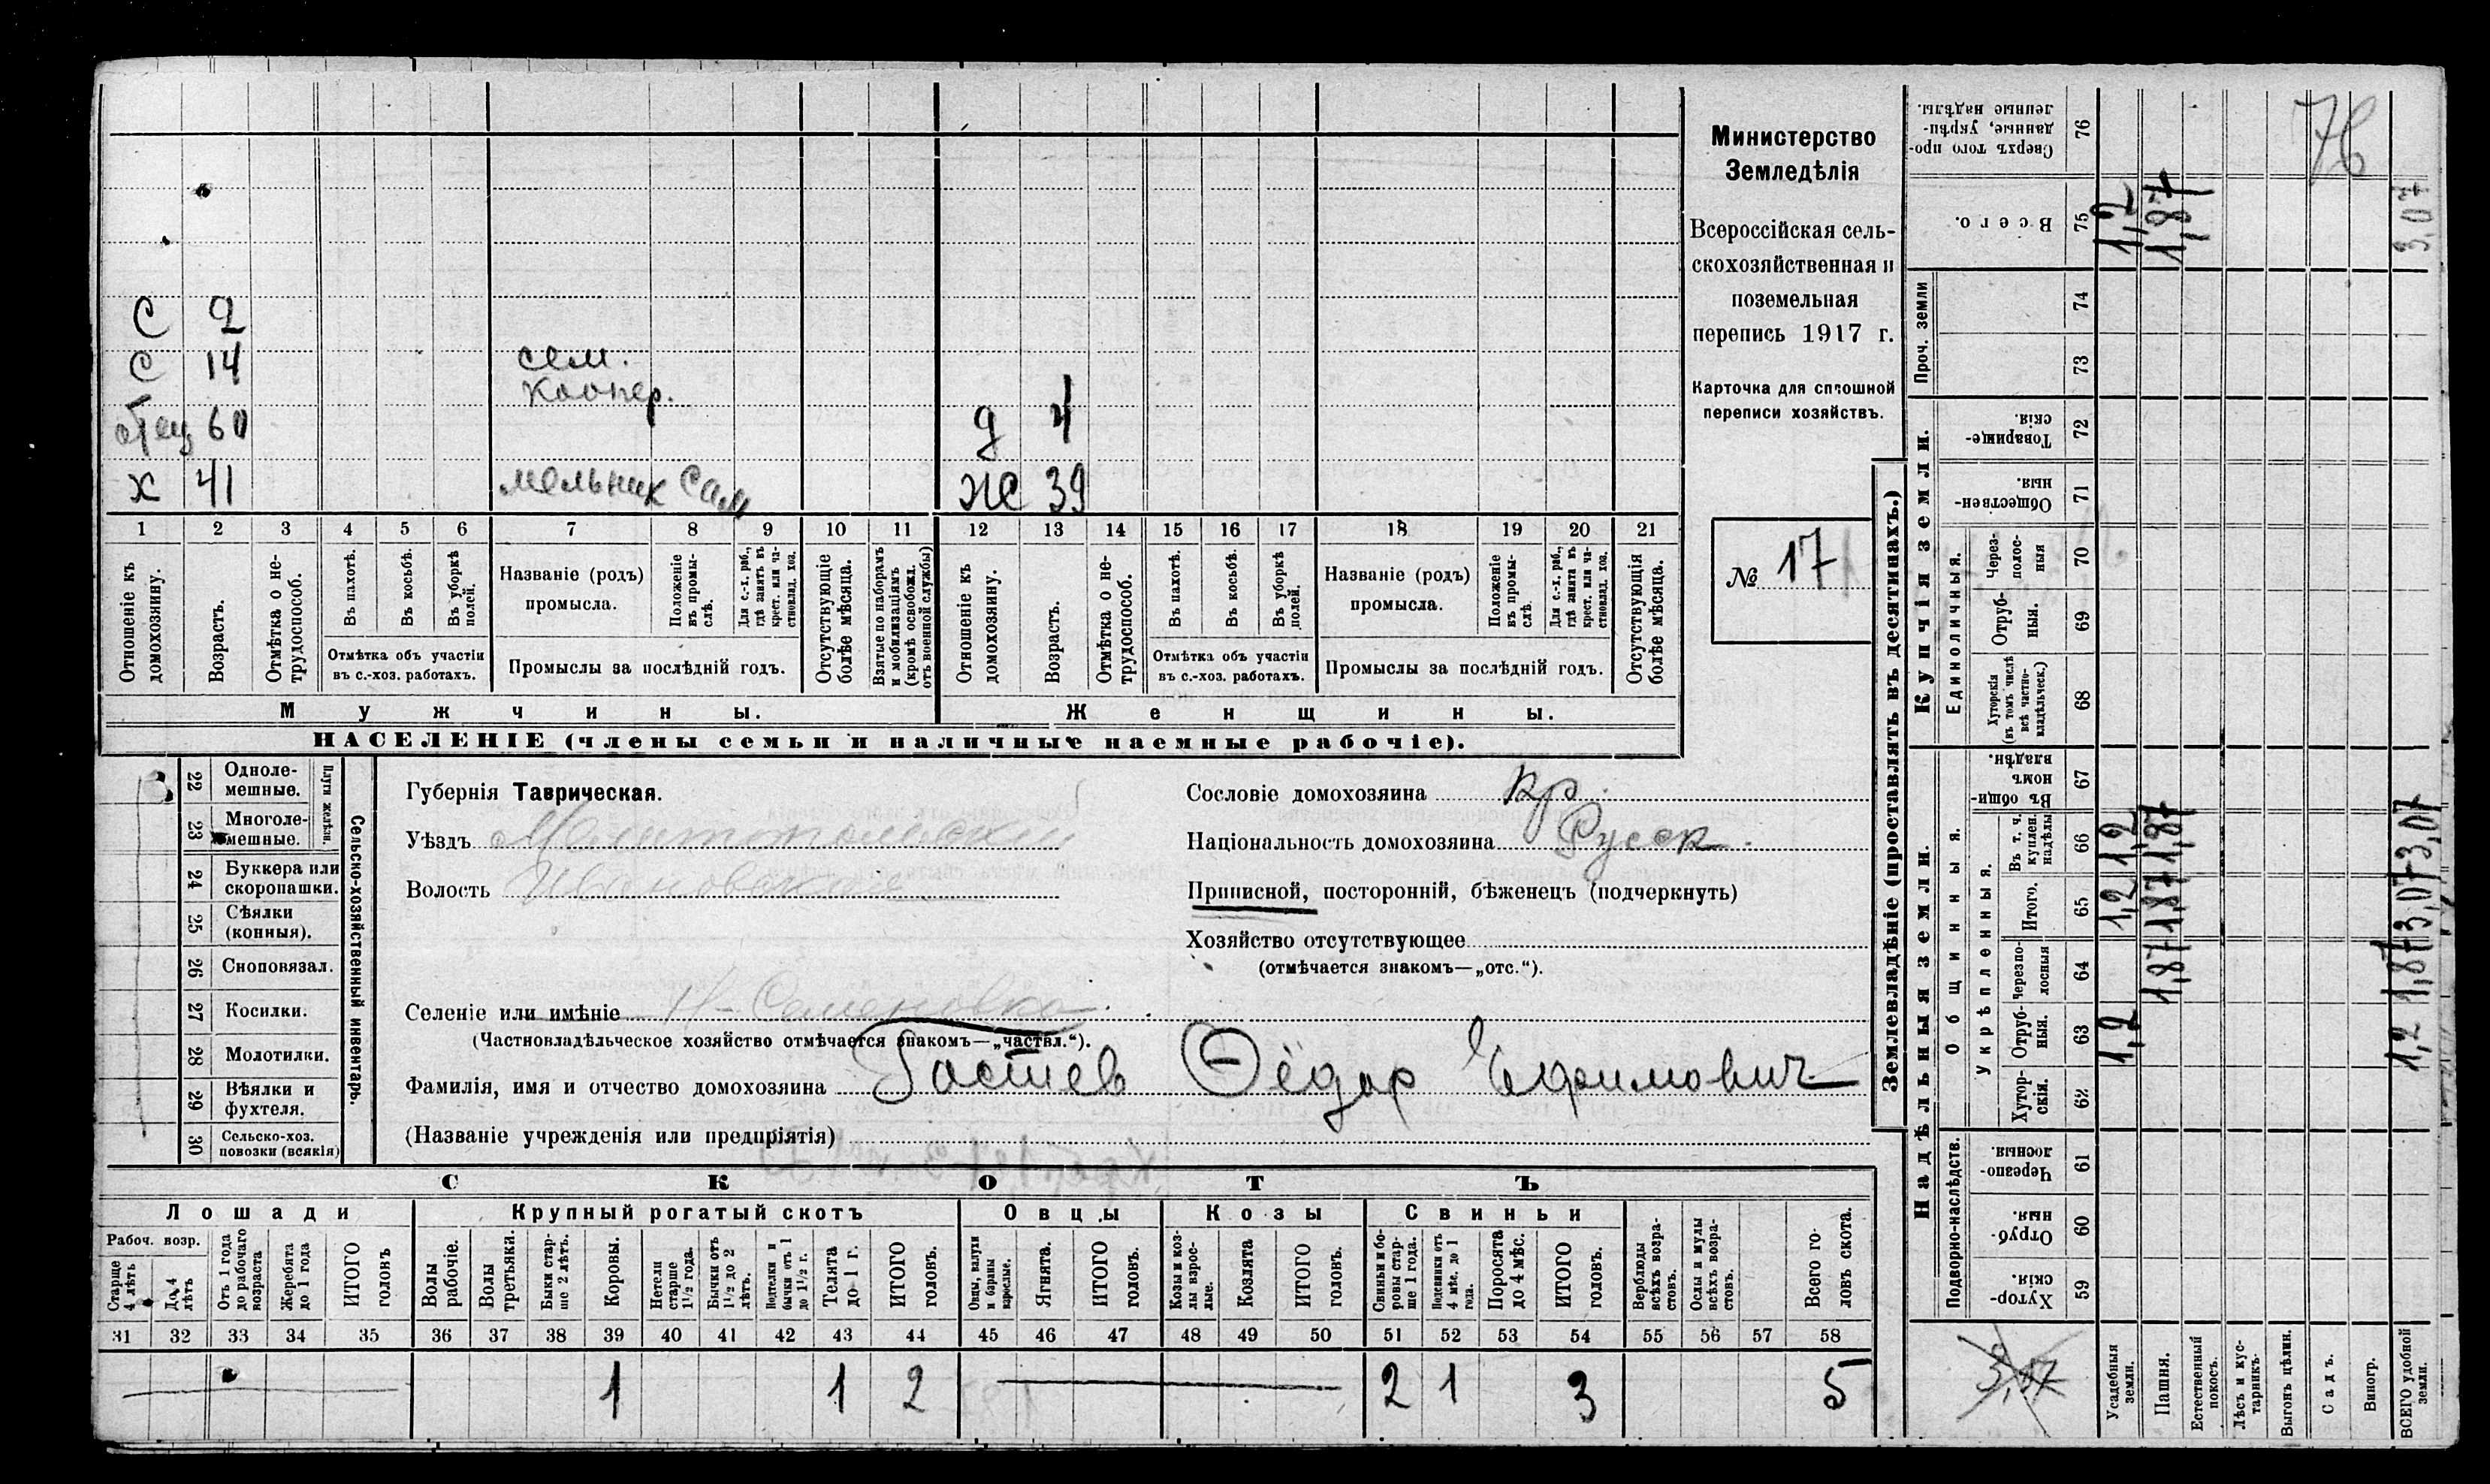 С 2
С 14 сем.
коопер.
отец 60 д 4
х 41 мельник сам ж 39
1 2 3 4 5 6 7 8 9 10 11 12 13 14 15 16 17 18 19 20 21
Отношеніе къ домохозяину.
Возрастъ.
Отмѣтка о не-трудоспособ.
Въ пахотѣ.
Въ косьбѣ.
Въ уборкѣ полей.
Отмѣтка объ участіи
въ с.-хоз. работахъ.
Названіе (родъ)
промысла.
Положеніе въ промы-слѣ.
Для с.-х. раб., гдѣ занятъ въ крест. или ча-стновлад. хоз.
Промыслы за послѣдній годъ.
Отсутствующіе болѣе мѣсяца.
Взятые по наборамъ и мобилизаціямъ (кромѣ освобожд. отъ военной службы)
Отношеніе къ домохозяину.
Возрастъ.
Отмѣтка о не-трудоспособ.
Въ пахотѣ.
Въ косьбѣ.
Въ уборкѣ полей.
Отмѣтка объ участіи
въ с.-хоз. работахъ.
Названіе (родъ)
промысла.
Положеніе въ промы-слѣ.
Для с.-х. раб., гдѣ занята въ крест. или ча-стновлад. хоз.
Промыслы за послѣдній годъ.
Отсутствующія болѣе мѣсяца.
Мужчины.
Женщины.
НАСЕЛЕНІЕ (члены семьи и наличные наемные рабочіе).
Министерство
Земледѣлія
Всероссійская сель-
скохозяйственная и
поземельная
перепись 1917 г.
Карточка для сплошной
переписи хозяйствъ.
№ 17
22 Одноле-мешные.
23 Многоле-мешные.
Плуги желѣзн.
24 Буккера или скоропашки.
25 Сѣялки (конныя).
26 Сноповязал.
27 Косилки.
28 Молотилки.
29 Вѣялки и фухтеля.
30 Сельско-хоз. повозки (всякія)
Сельско-хозяйственный инвентарь.
Губернія Таврическая.
Уѣздъ Мелитопольскій
Волость Ивановская
Селеніе или имѣніе Н-Семеновка
(Частновладѣльческое хозяйство отмѣчается знакомъ—„частвл.“).
Фамилія, имя и отчество домохозяина Гостев Ѳёдор Ефимович
(Названіе учрежденія или предпріятія)
Сословіе домохозяина кр.
Національность домохозяина Русск.
Приписной, посторонній, бѣженецъ (подчеркнуть)
Хозяйство отсутствующее
(отмѣчается знакомъ—„отс.“).
СКОТЪ
Лошади
Крупный рогатый скотъ
Овцы
Козы
Свиньи
Рабоч. возр.
Старше 4 лѣтъ
До 4 лѣтъ
Отъ 1 года до рабочаго возраста
Жеребята до 1 года
ИТОГО головъ
Волы рабочіе.
Волы третьяки.
Быки стар-ше 2 лѣтъ.
Коровы.
Нетели старше 1½ года.
Бычки отъ 1½ до 2 лѣтъ.
Подтелки и бычки отъ 1 до 1½ г.
Телята до 1 г.
ИТОГО головъ.
Овцы, валухи и бараны взрослые.
Ягнята.
ИТОГО головъ.
Козы и коз-лы взрос-лые.
Козлята
ИТОГО головъ.
Свиньи и бо-ровы стар-ше 1 года.
Подсвинки отъ 4 мѣс. до 1 года.
Поросята до 4 мѣс.
ИТОГО головъ.
Верблюды всѣхъ возра-стовъ.
Ослы и мулы всѣхъ возра-стовъ.
Всего го-ловъ скота.
31 32 33 34 35 36 37 38 39 40 41 42 43 44 45 46 47 48 49 50 51 52 53 54 55 56 57 58
1 1 2 2 1 3 5
Землевладѣніе (проставлять въ десятинахъ.)
Надѣльныя земли.
Купчія земли.
Проч. земли
Подворно-наслѣдств.
Общинныя.
Укрѣпленныя.
Единоличныя.
Хутор-скія. 59
Отруб-ныя. 60
Черезпо-лосныя. 61
Хутор-скія. 62
Отруб-ныя. 63
Черезпо-лосныя 64
Итого. 65
Въ т. ч. куплен. надѣлы 66
Въ общи-номъ владѣн. 67
Хуторскія (въ томъ числѣ всѣ частно-владѣльческ.) 68
Отруб-ныя. 69
Черезполос-ныя 70
Обществен-ныя. 71
Товарище-скія. 72
73
74
Всего. 75
Сверхъ того про-данные, укрѣп-ленные надѣлы. 76
76
3,07
Усадебныя земли. 1,2 1,2 1,2 1,2
Пашня. 1,87 1,87 1,87 1,87
Естественный покосъ.
Лѣсъ и кус-тарникъ.
Выгонъ цѣлин.
Садъ.
Виногр.
ВСЕГО удобной земли. 1,2 1,87 3,07 3,07 3,07